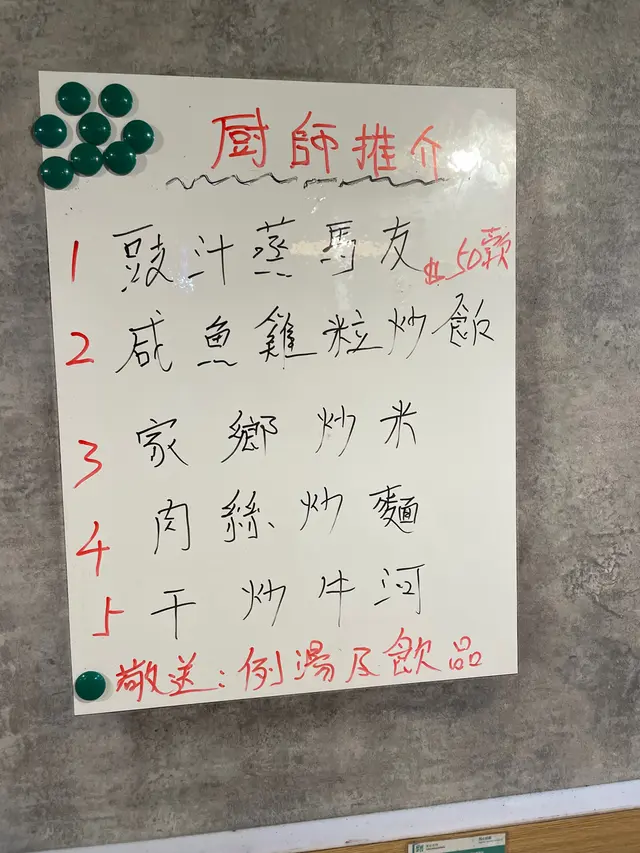 厨師推介
1 豉汁蒸馬友 50
2 咸魚雞粒炒飯
3 家鄉炒米
4 肉絲炒麵
5 干炒牛河
敬送：例湯及飲品